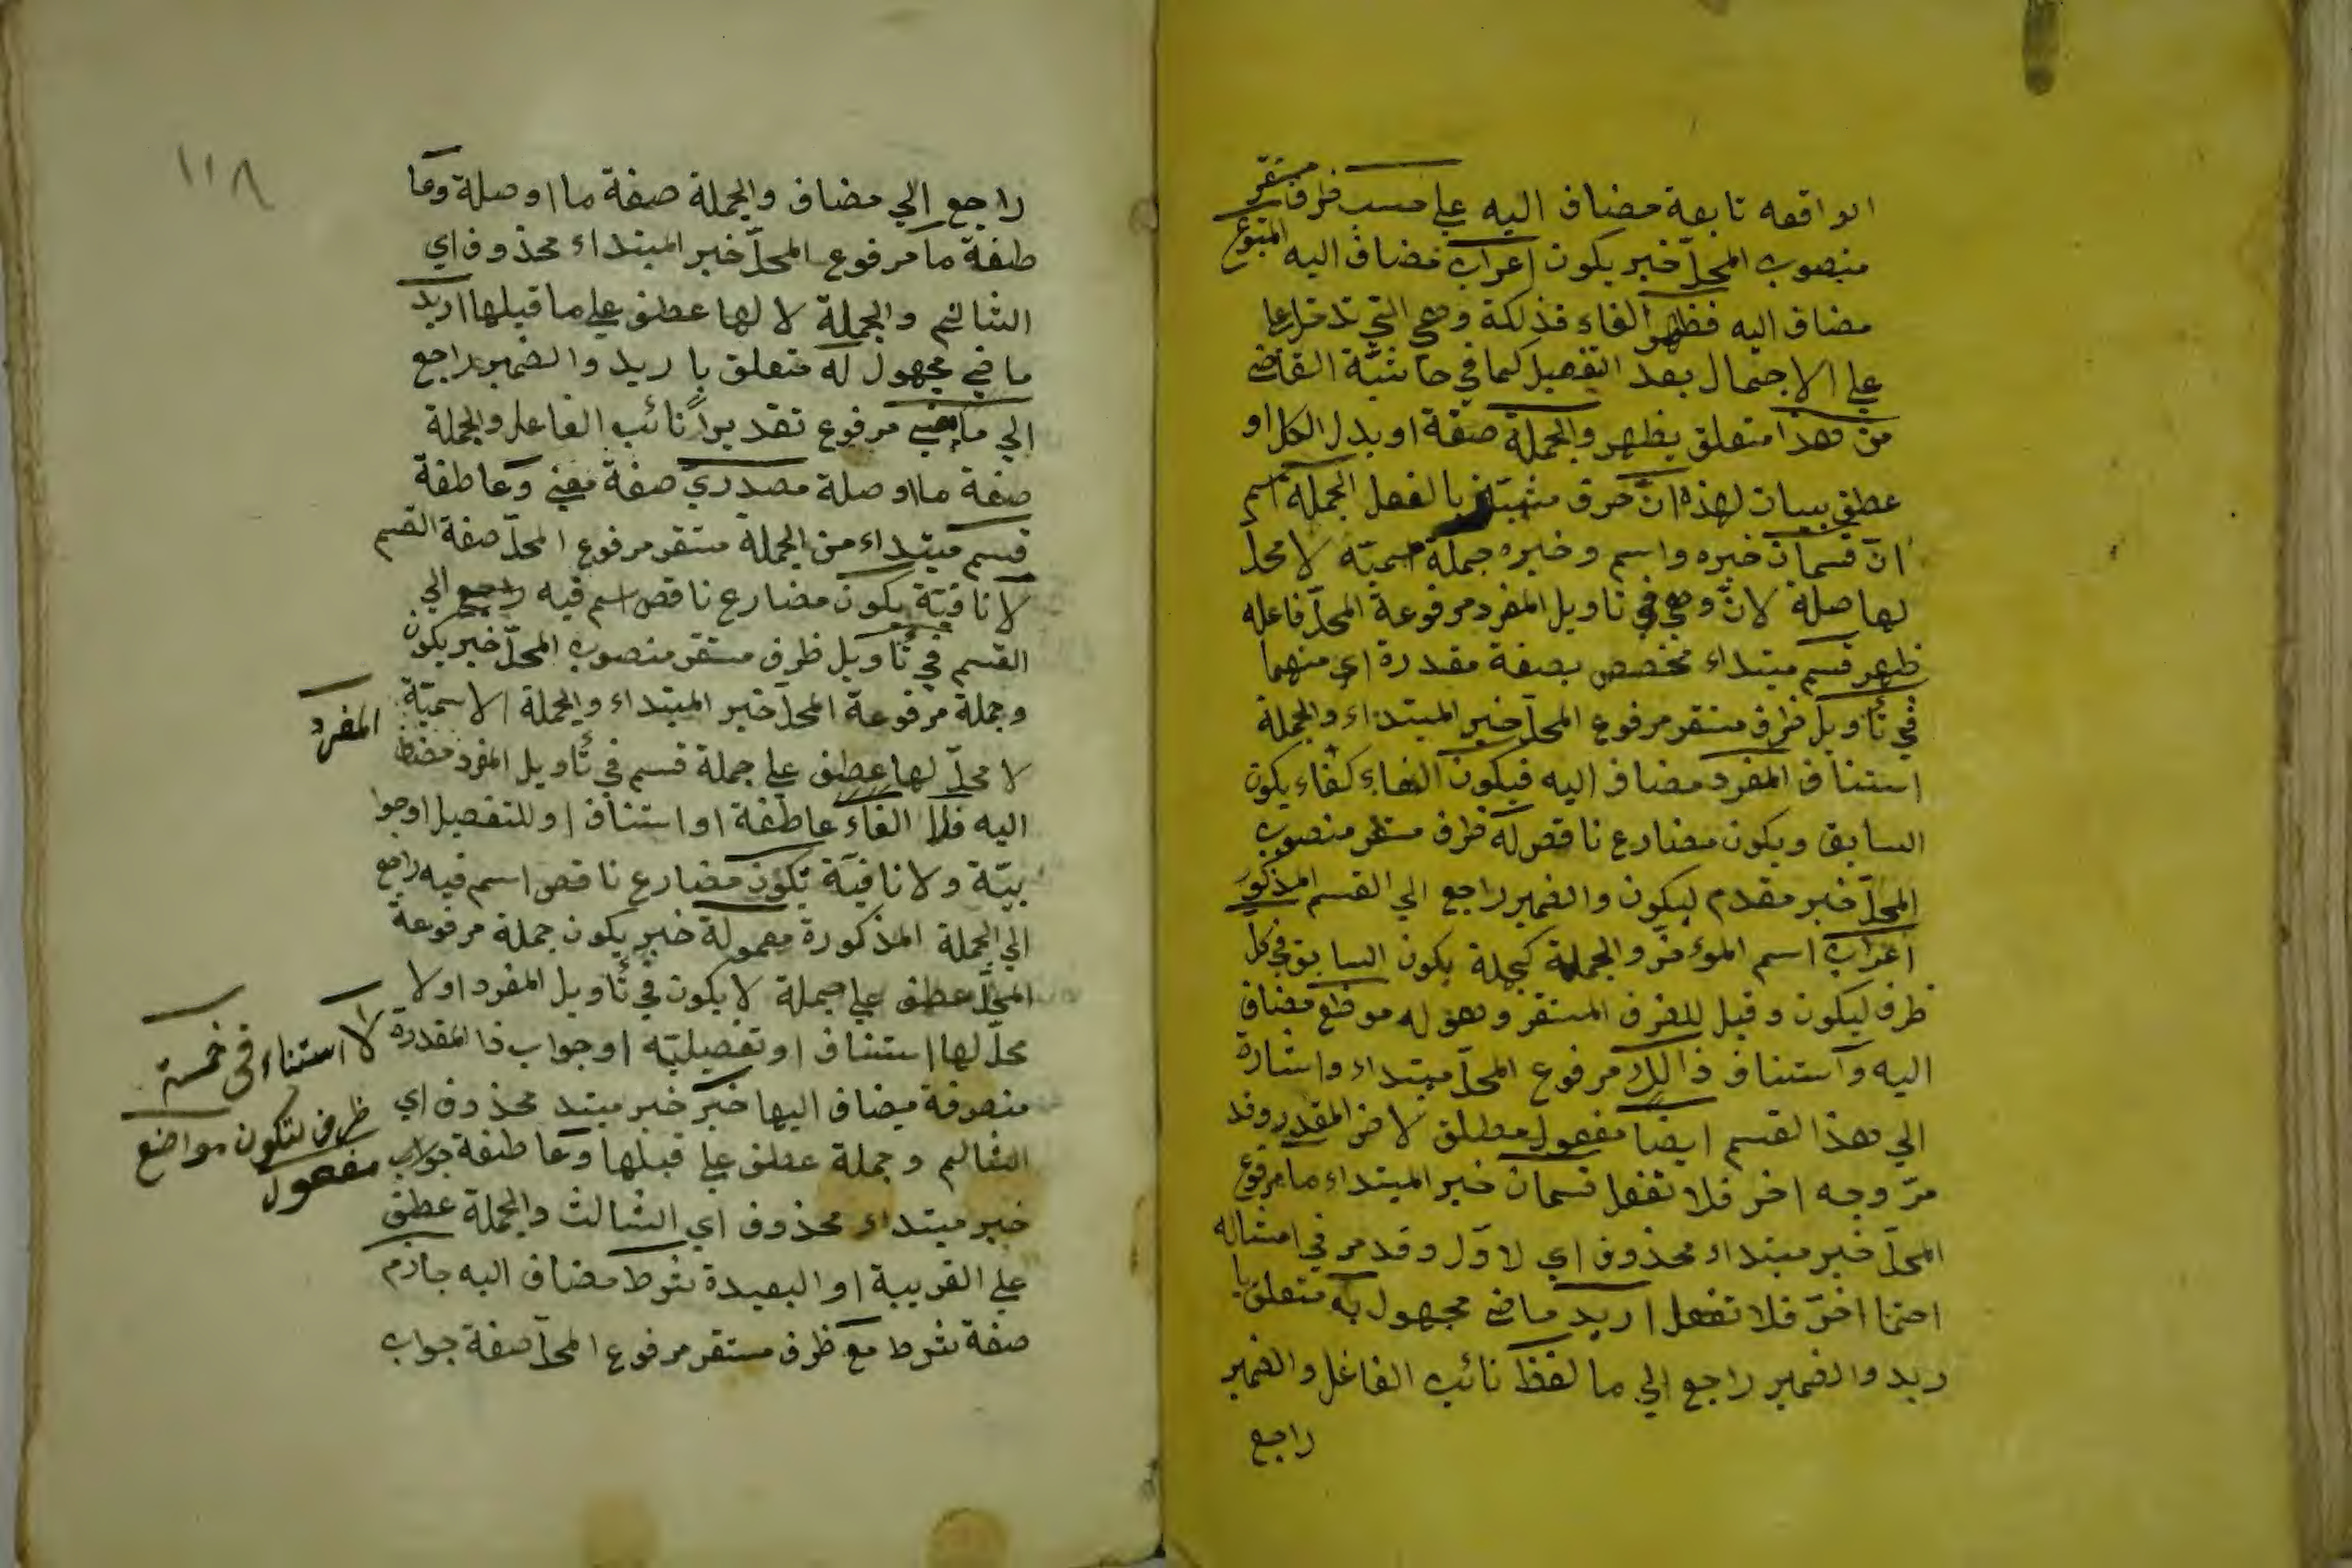 الواقعه تابعة مضاف اليه علي حسب ظرف مستقر
منصوب المحلّ خبر يكون اعراب مضاف اليه المتبوع
مضاف اليه فظهر الفاء فذلكة وهي التي تدخل علي
علي الاجمال بعد التفصيل كما في حاشية القاضي
من هذا متعلق بظهر والجملة صفة او بدل الكل او
عطف بيان لهذا انّ حرف مشبّه بالفعل الجملة اسم
انّ قسمان خبره واسم وخبره جملة اسميّة لا محلّ
لها صلة لانّ وهي في تاويل المفرد مرفوعة المحلّ فاعله
ظهر قسم مبتداء مخصص بصفة مقدرة اي منهما
في تأويل ظرف مستقر مرفوع المحلّ خبر المبتداء والجملة
استيناف المفرد مضاف اليه فيكون الفاء كفاء يكون
السابق ويكون مضارع ناقص له ظرف مستقر منصوب
المحلّ خبر مقدم ليكون والضمير راجع الي القسم المذكور
اعراب اسم المؤخّر والجملة كجملة يكون السابق في كل
ظرف ليكون وقيل للظرف المستقر وهو له موضع مضاف
اليه واستيناف ذالك مرفوع المحلّ مبتداء واشارة
الي هذا القسم ايضا مفعول مطلق لاض المقدر وقد
مرّ وجه اخر فلا تغفل قسمان خبر المبتداء ما مرفوع
المحلّ خبر مبتداء محذوف اي لاوّل وقد مر في امثاله
احتمالا اخرّ فلا تغفل اريد ماضي مجهول به متعلق با
ريد والضمير راجع الي ما لفظ نائب الفاعل والضمير
راجع
١١٨
راجع الي مضاف والجملة صفة ما او صلة وعا
طفة ما مرفوع المحلّ خبر المبتداء محذوف اي
الثاني والجملة لا لها عطف علي ما قبلها اريد
ماضي مجهول له متعلق با ريد والضمير راجع
الي ما معني مرفوع تقديرا نائب الفاعل والجملة
صفة ما او صلة مصدري صفة معني وعاطفة
قسم مبتداء من الجملة مستقر مرفوع المحلّ صفة القسم
لا نافيّة يكون مضارع ناقص اسم فيه راجع الي
القسم في تأويل ظرف مستقر منصوب المحلّ خبر يكون
وجملة مرفوعة المحلّ خبر المبتداء والجملة الاسميّة
لا محلّ لها عطف علي جملة قسم في تأويل المفرد مضاف
المفرد
اليه فلا الفاء عاطفة او استيناف او للتفصيل او جوا
بيّة ولا نافيّة تكون مضارع ناقص اسم فيه راجع
الي الجملة المذكورة معمولة خبر يكون جملة مرفوعة
المحلّ عطف علي جملة لا يكون في تأويل المفرد او لا
محلّ لها استيناف او تفصيليّه او جواب ذا المقدرة
لا استثناء في خمسة
منصرفة مضاف اليها خبر خبر مبتد محذوف اي
ظرف لتكون مواضع
وجملة عطف علي قبلها وعاطفة جواب
مفعول
خبر مبتداء محذوف اي الثالث والجملة عطف
علي القريبة او البعيدة شرط مضاف اليه جازم
صفة شرط مع ظرف مستقر مرفوع المحلّ صفة جواب